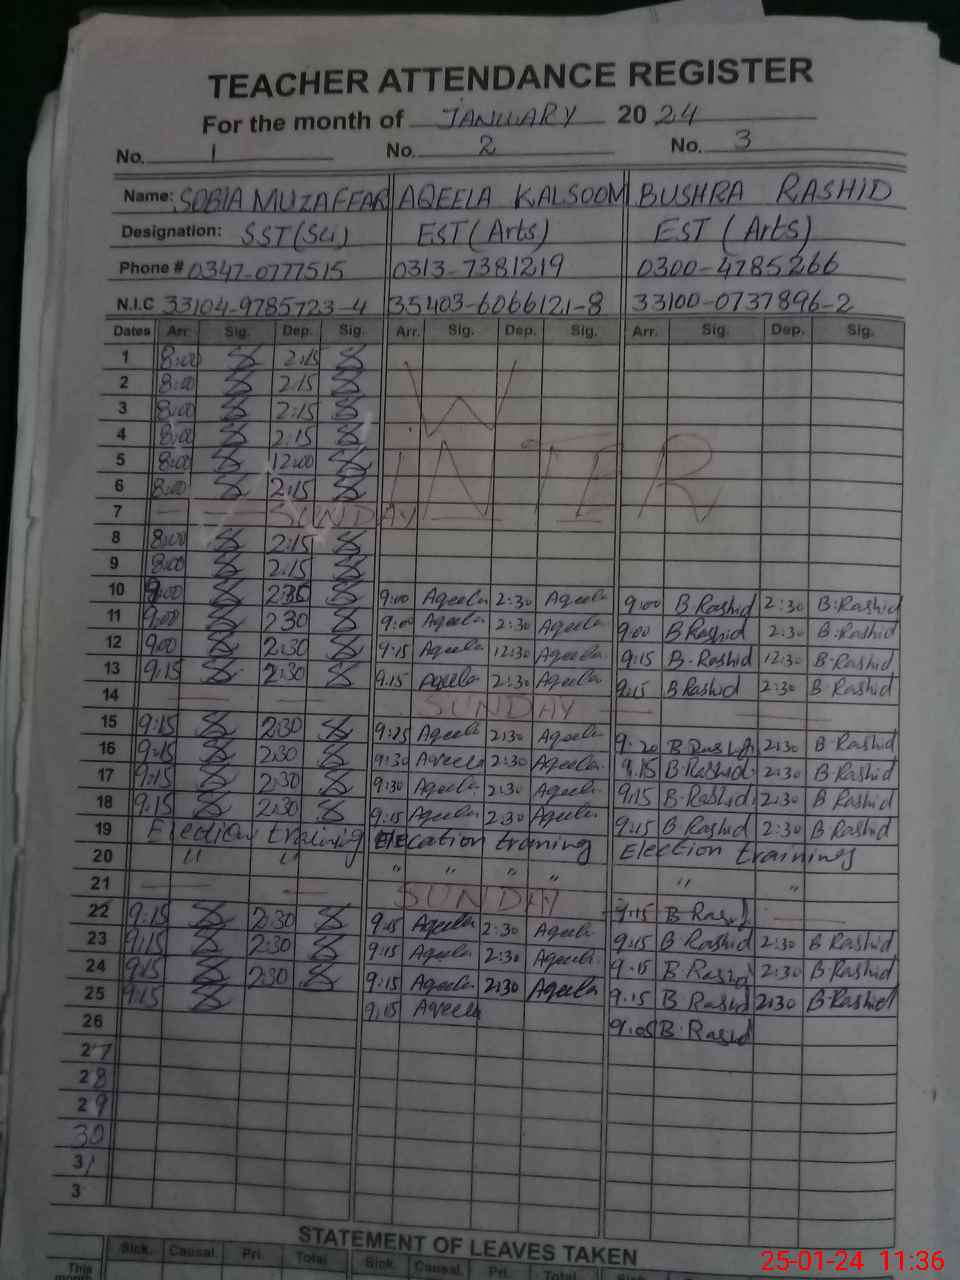 TEACHER ATTENDANCE REGISTER
For the month of JANUARY 2024
No. 1 No. 2 No. 3
Name: SOBIA MUZAFFAR AQEELA KALSOOM BUSHRA RASHID
Designation: SST(Sci) EST(Arts) EST (Arts)
Phone # 0347-0777515 0313-7381219 0300-4785266
N.I.C 33104-9785723-4 35403-6066121-8 33100-0737896-2
Dates Arr. Sig. Dep. Sig. Arr. Sig. Dep. Sig. Arr. Sig. Dep. Sig.
1 8:00 2:15
2 8:00 2:15
3 8:00 2:15
4 8:00 2:15
5 8:00 12:00
6 8:00 2:15
WINTER
7 SUNDAY
8 8:00 2:15
9 8:00 2:15
10 9:00 2:30 9:00 Aqeela 2:30 Aqeela 9:00 B Rashid 2:30 B.Rashid
11 9:00 2:30 9:00 Aqeela 2:30 Aqeela 9:00 B Rashid 2:30 B.Rashid
12 9:00 2:30 9:15 Aqeela 12:30 Aqeela 9:15 B.Rashid 12:30 B.Rashid
13 9:15 2:30 9:15 Aqeela 2:30 Aqeela 9:15 B Rashid 2:30 B.Rashid
14 SUNDAY
15 9:15 2:30 9:25 Aqeela 2:30 Aqeela 9:20 B Rashid 2:30 B.Rashid
16 9:15 2:30 9:30 Aqeela 2:30 Aqeela 9:15 B.Rashid 2:30 B.Rashid
17 9:15 2:30 9:30 Aqeela 2:30 Aqeela 9:15 B.Rashid 2:30 B.Rashid
18 9:15 2:30 9:15 Aqeela 2:30 Aqeela 9:15 B.Rashid 2:30 B.Rashid
19 Election training training Election trainings
20 " " " " " " " "
21 SUNDAY
22 9:15 2:30 9:15 Aqeela 2:30 Aqeela 9:15 B Rashid
23 9:15 2:30 9:15 Aqeela 2:30 Aqeela 9:15 B Rashid 2:30 B Rashid
24 9:15 2:30 9:15 Aqeela 2:30 Aqeela 9:15 B.Rashid 2:30 B Rashid
25 9:15 9:15 Aqeela 9:15 B Rashid 2:30 B.Rashid
26 9:05 B.Rashid
27
28
29
30
31
3
STATEMENT OF LEAVES TAKEN
Sick. Causal. Pri. Total Sick. Causal. Pri. Total
This month
25-01-24 11:36